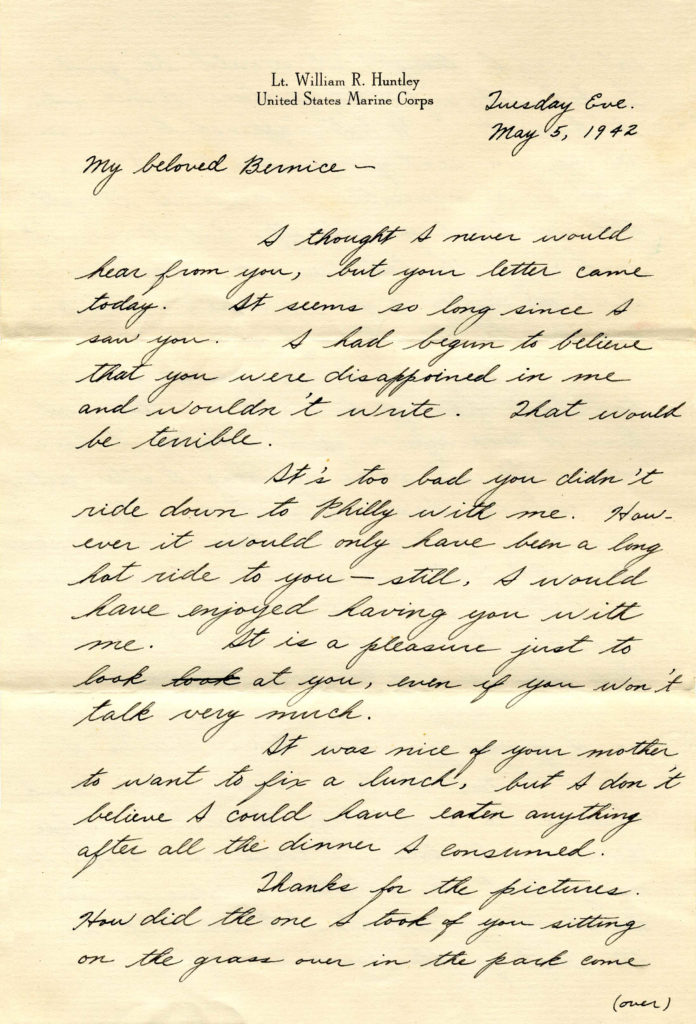 Lt. William R. Huntley
United States Marine Corps
Tuesday Eve.
May 5, 1942
My beloved Bernice —
I thought I never would
hear from you, but your letter came
today. It seems so long since I
saw you. I had begun to believe
that you were disappoined in me
and wouldn't write. That would
be terrible.
It's too bad you didn't
ride down to Philly with me. How-
ever it would only have been a long
hot ride to you — still, I would
have enjoyed having you with
me. It is a pleasure just to
look look at you, even if you won't
talk very much.
It was nice of your mother
to want to fix a lunch, but I don't
believe I could have eaten anything
after all the dinner I consumed.
Thanks for the pictures.
How did the one I took of you sitting
on the grass over in the park come
(over)